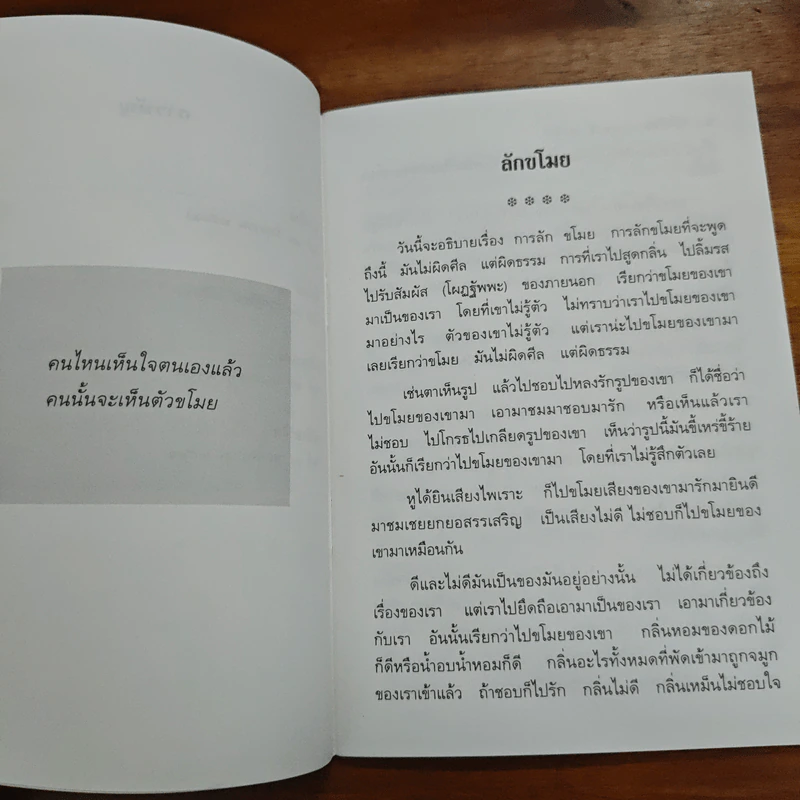 คนไหนเห็นใจตนเองแล้ว
คนนั้นจะเห็นตัวขโมย
ลักขโมย
วันนี้จะอธิบายเรื่อง การลัก ขโมย การลักขโมยที่จะพูด
ถึงนี้ มันไม่ผิดศีล แต่ผิดธรรม การที่เราไปสูดกลิ่น ไปลิ้มรส
ไปรับสัมผัส (โผฏฐัพพะ) ของภายนอก เรียกว่าขโมยของเขา
มาเป็นของเรา โดยที่เขาไม่รู้ตัว ไม่ทราบว่าเราไปขโมยของเขา
มาอย่างไร ตัวของเขาไม่รู้ตัว แต่เราน่ะไปขโมยของเขามา
เลยเรียกว่าขโมย มันไม่ผิดศีล แต่ผิดธรรม
เช่นตาเห็นรูป แล้วไปชอบไปหลงรักรูปของเขา ก็ได้ชื่อว่า
ไปขโมยของเขามา เอามาชมมาชอบมารัก หรือเห็นแล้วเรา
ไม่ชอบ ไปโกรธไปเกลียดรูปของเขา เห็นว่ารูปนี้มันขี้เหร่ขี้ร้าย
อันนั้นก็เรียกว่าไปขโมยของเขามา โดยที่เราไม่รู้สึกตัวเลย
หูได้ยินเสียงไพเราะ ก็ไปขโมยเสียงของเขามารักมายินดี
มาชมเชยยกยอสรรเสริญ เป็นเสียงไม่ดี ไม่ชอบก็ไปขโมยของ
เขามาเหมือนกัน
ดีและไม่ดีมันเป็นของมันอยู่อย่างนั้น ไม่ได้เกี่ยวข้องถึง
เรื่องของเรา แต่เราไปยึดถือเอามาเป็นของเรา เอามาเกี่ยวข้อง
กับเรา อันนั้นเรียกว่าไปขโมยของเขา กลิ่นหอมของดอกไม้
ก็ดีหรือน้ำอบน้ำหอมก็ดี กลิ่นอะไรทั้งหมดที่พัดเข้ามาถูกจมูก
ของเราเข้าแล้ว ถ้าชอบก็ไปรัก กลิ่นไม่ดี กลิ่นเหม็นไม่ชอบใจ